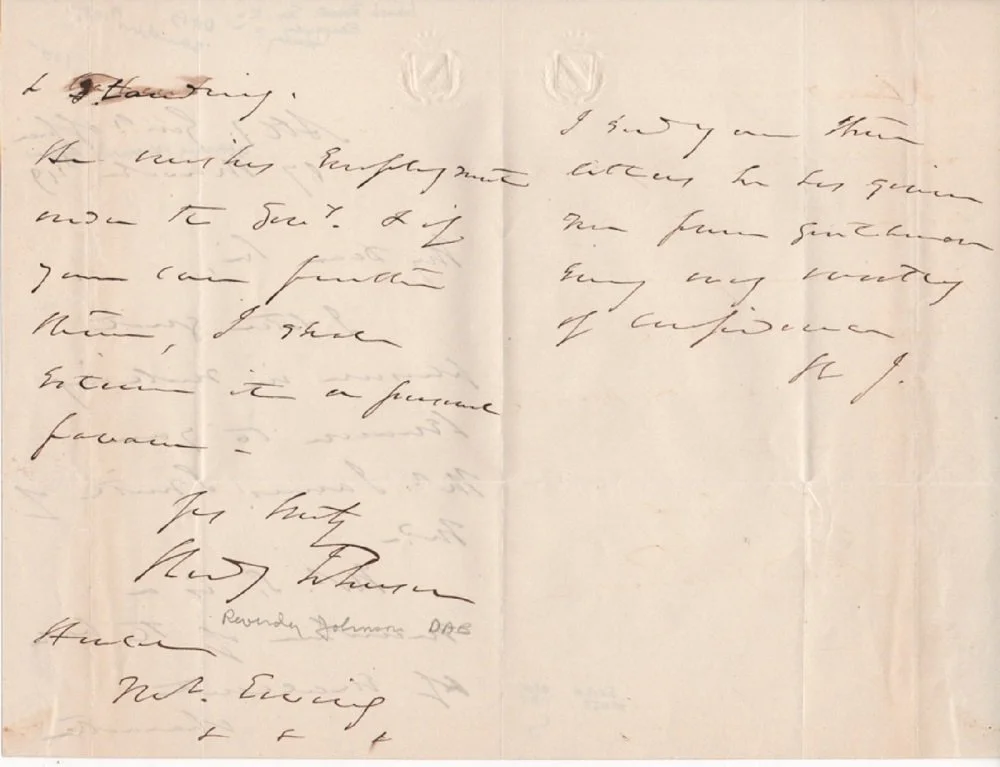 & Standing.
He wishes Employment
under the Gov.t & if
you can further
them, I shall
Esteem it a personal
favour -
Reverdy Johnson
Reverdy Johnson DAB
Ewing
+ + +
I send you three
letters he has given
me from gentlemen
Every way worthy
of confidence
R J.